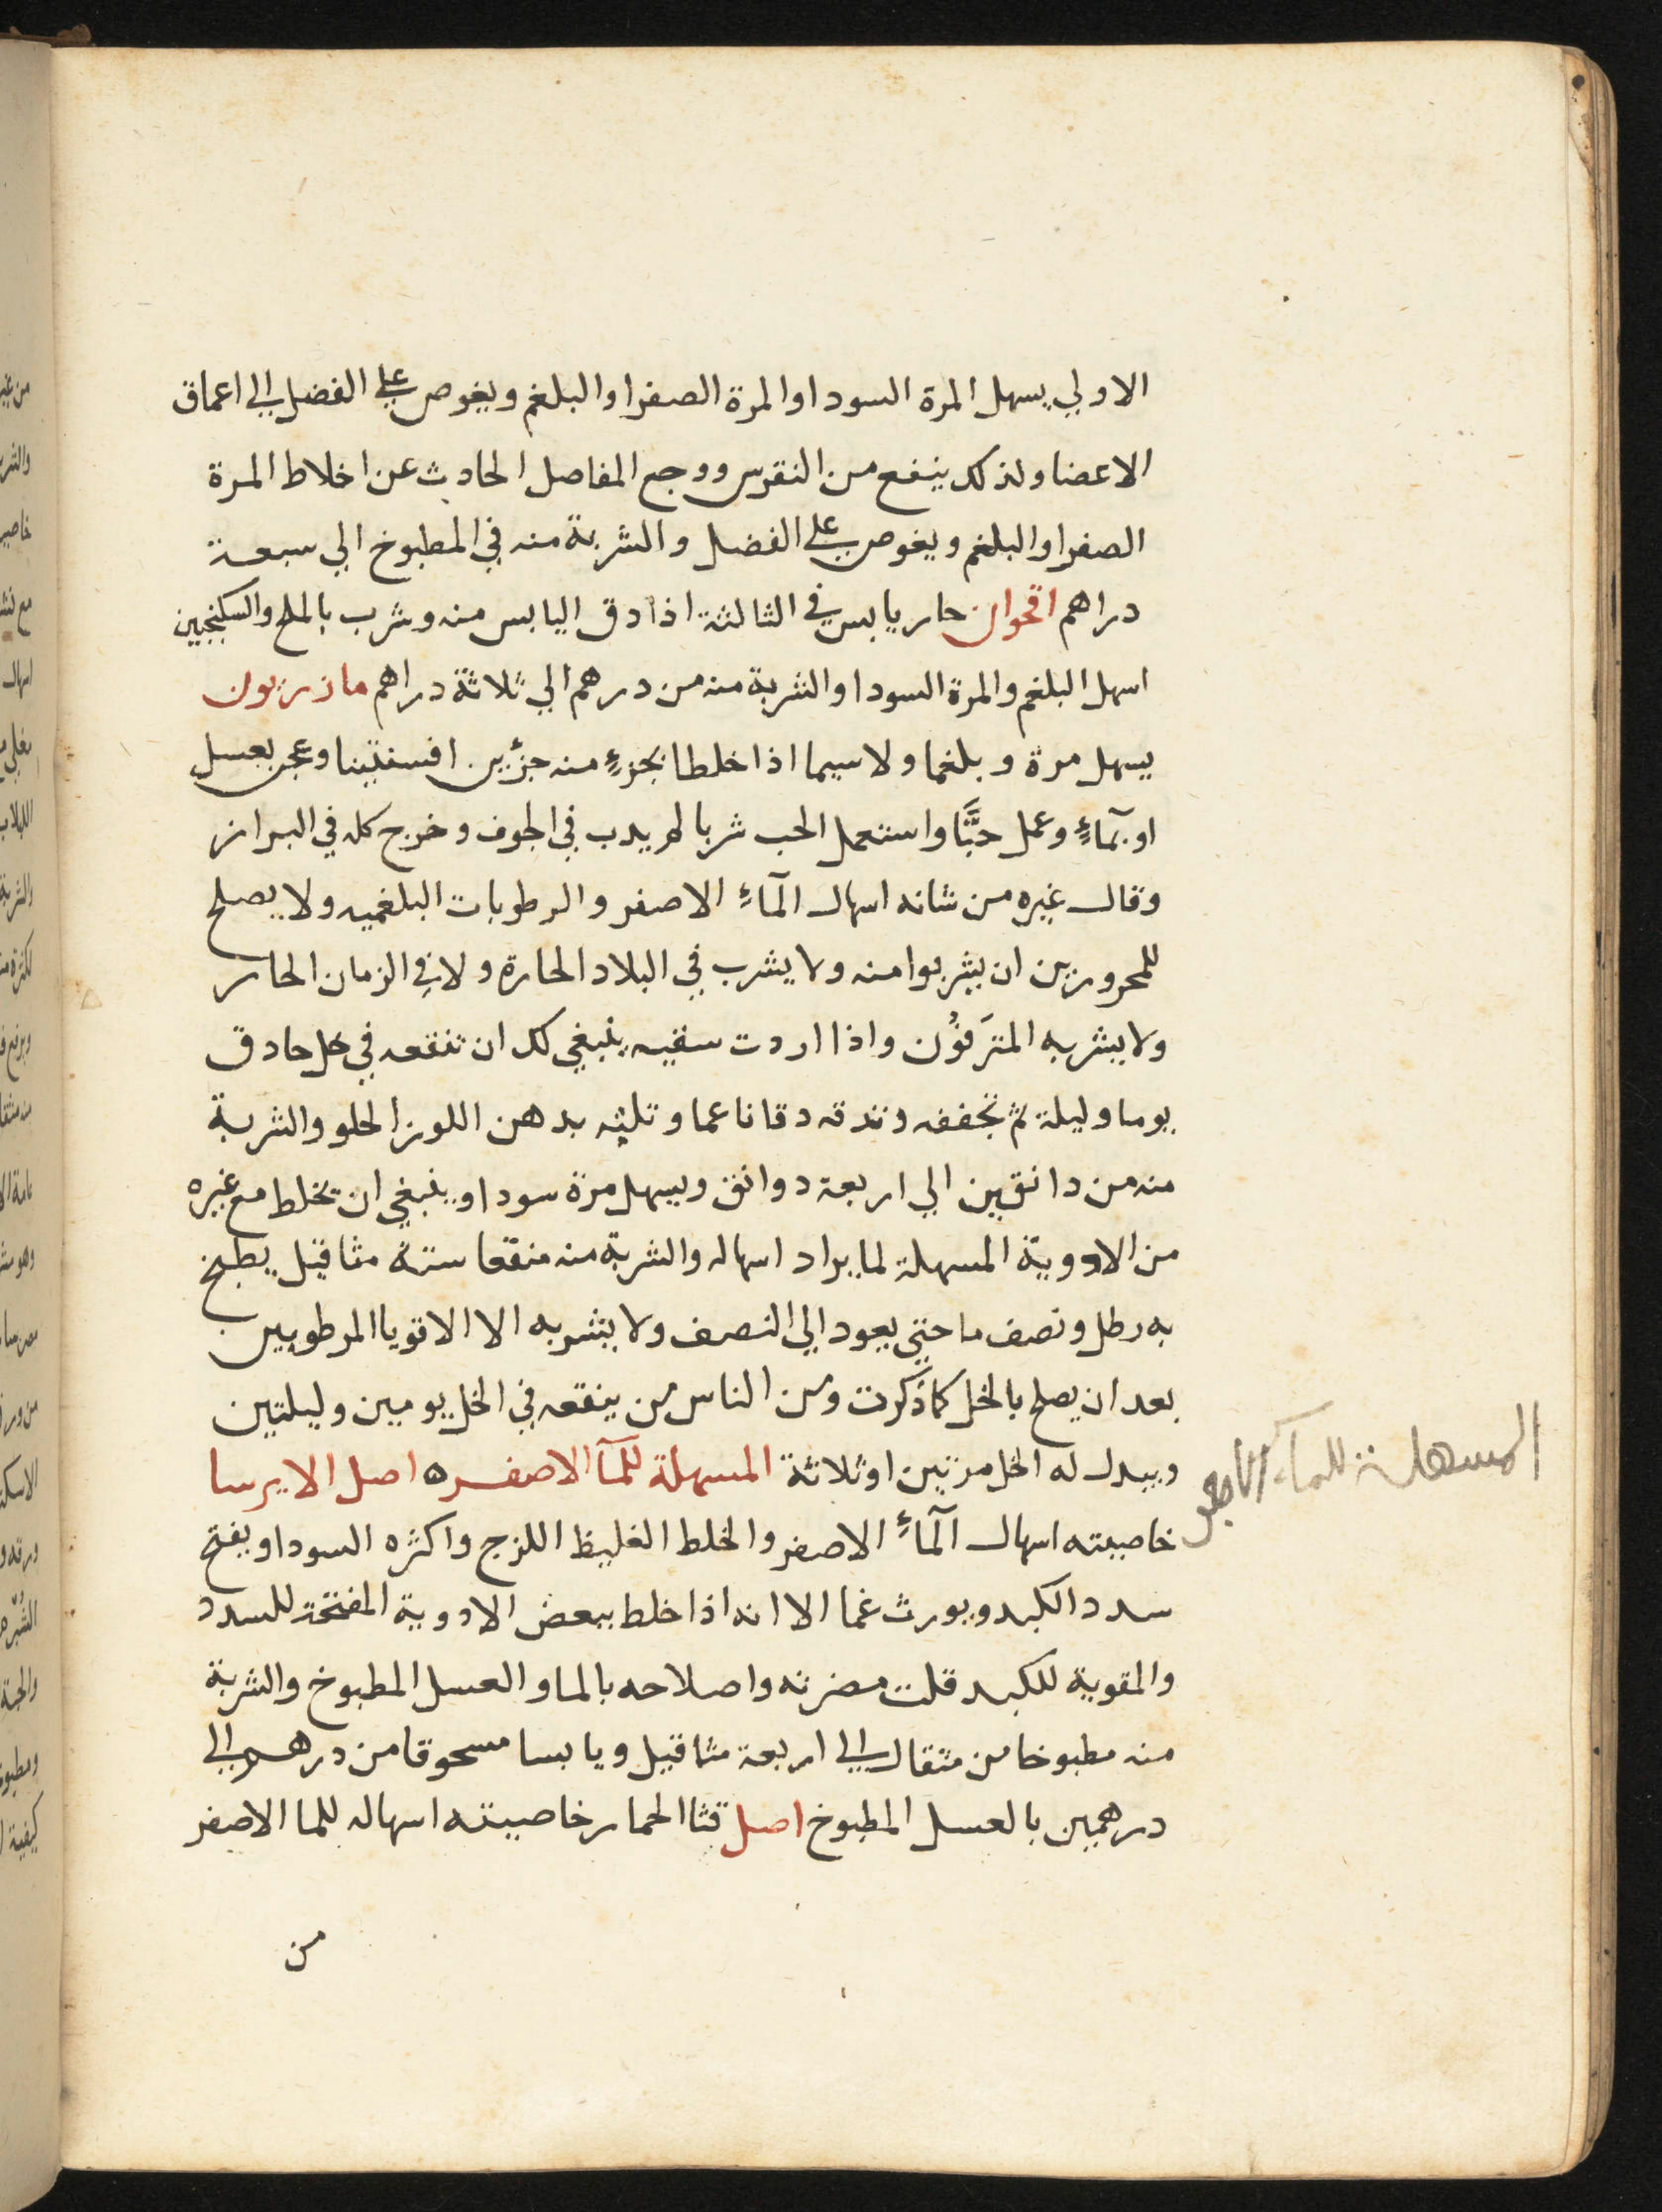 الاولي يسهل المرة السودا والمرة الصفرا والبلغم ويغوص علي الفضل الي اعماق
الاعضا ولذلك ينفع من النقرس ووجع المفاصل الحادث عن اخلاط المرة
الصفرا والبلغم ويغوص علي الفضل والشربة منه في المطبوخ الي سبعة
دراهم اقحوان حار يابس في الثالثة اذا دق اليابس منه وشرب بالملح والسكنجبين
اسهل البلغم والمرة السودا والشربة منه من درهم الي ثلاثة دراهم مازريون
يسهل مرة وبلغما ولا سيما اذا خلطا بجزءٍ منه جزئين افسنتينا وعجن بعسل
او بمآءٍ وعمل حبًّا واستعمل الحب شربا لم يدب في الجوف وخرج كله في البراز
وقال غيره من شانه اسهال المآءِ الاصفر والرطوبات البلغميه ولا يصلح
للمحرورين ان يشربوا منه ولا يشرب في البلاد الحارة ولا في الزمان الحار
ولا يشربه المترَفوُن واذا اردت سقيه ينبغي لك ان تنقعه في خل حادق
يوما وليلة ثم تجففه وتدقه دقا ناعما وتلثه بدهن اللوز الحلو والشربة
منه من دانقين الي اربعة دوانق ويسهل مرة سودا وينبغي ان تخلط مع غيره
من الادوية المسهلة لما يراد اسهاله والشربة منه منقعا ستة مثاقيل يطبخ
به رطل ونصف ما حتي يعود الي النصف ولا يشربه الا الاقويا المرطوبين
بعد ان يصلح بالخل كما ذكرت ومن الناس من ينقعه في الخل يومين وليلتين
ويبدل له الخل مرتين او ثلاثة المسهلة للمآ الاصفر ه اصل الايرسا
المسهلة للماء الاصفر
خاصيته اسهال المآءِ الاصفر والخلط الغليظ اللزج واكثره السودا ويفتح
سدد الكبد ويورث غما الا انه اذا خلط ببعض الادوية المفتحة للسدد
والمقوية للكبد قلت مضرته واصلاحه بالما والعسل المطبوخ والشربة
منه مطبوخا من مثقال الي اربعة مثاقيل ويابسا مسحوقا من درهم الي
درهمين بالعسل المطبوخ اصل قثا الحمار خاصيته اسهاله للما الاصفر
من